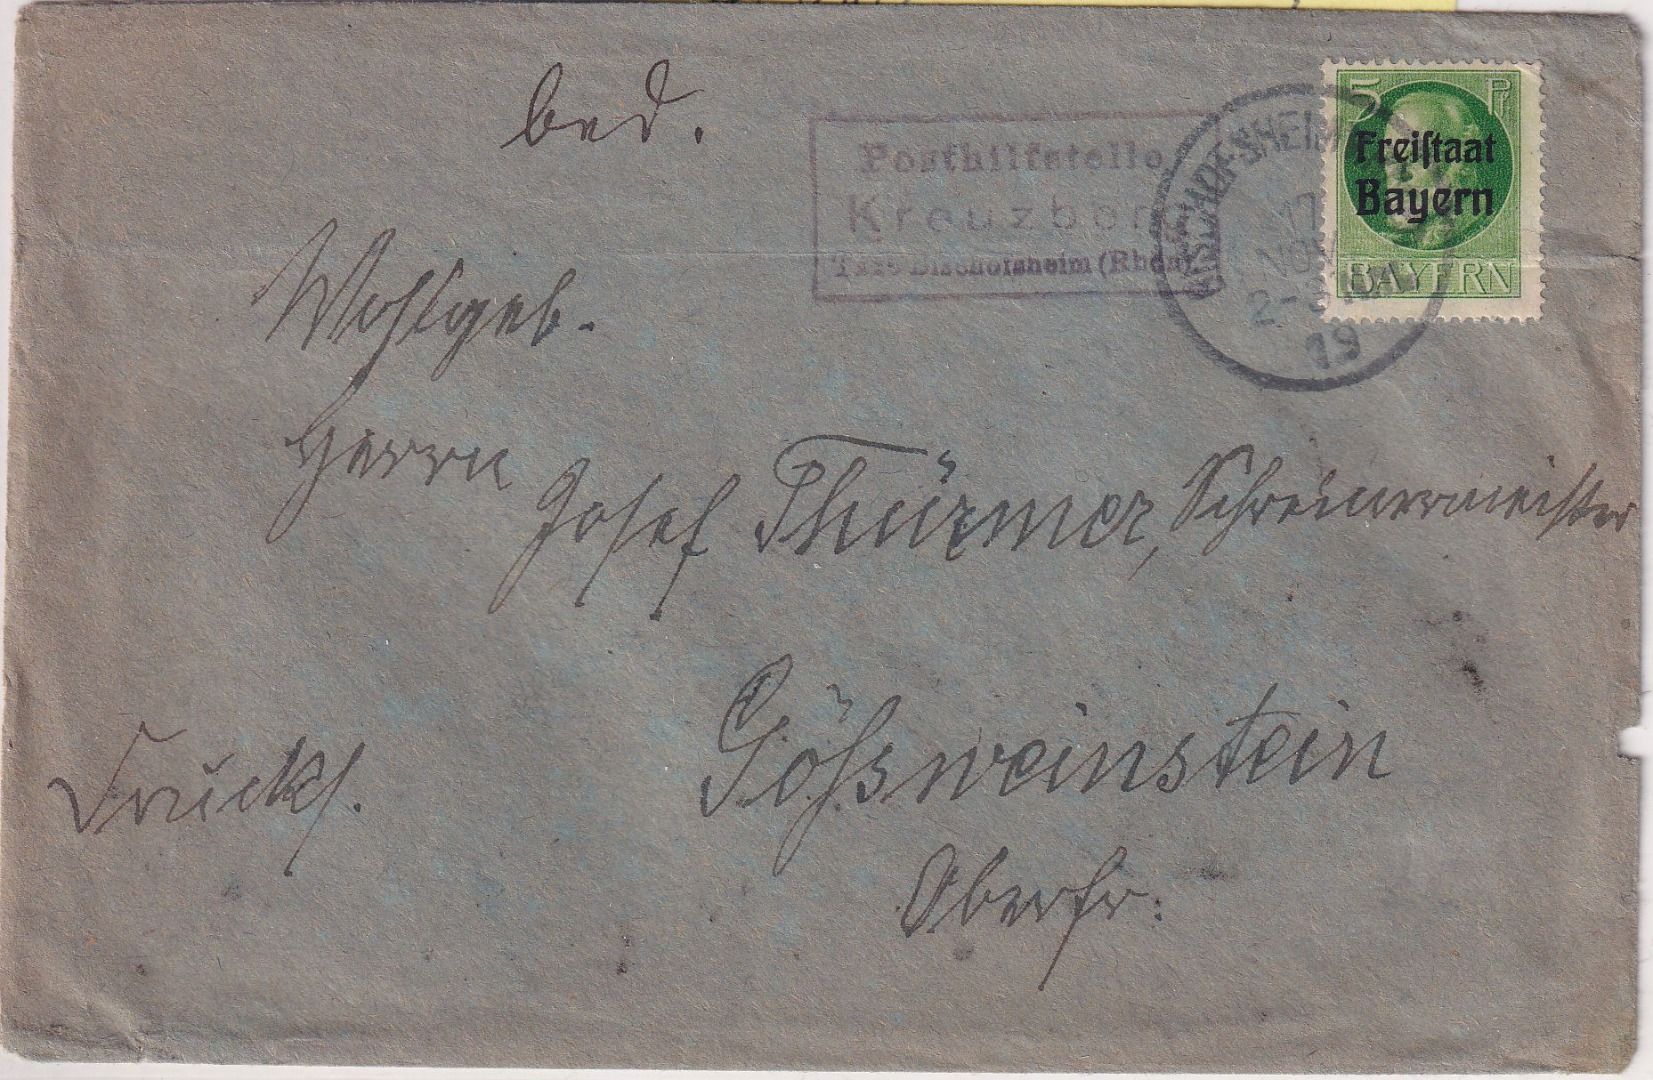 bed.
Posthilfstelle
Kreuzberg
Taxe Bischofsheim (Rhön)
BISCHOFSHEIM
17
NOV
2-3 NM
19
5 Pf
Freiſtaat
Bayern
BAYERN
Wohlgeb.
Herrn
Josef Thürmer, Schreinermeister
Gößweinstein
Drucks.
Oberfr: